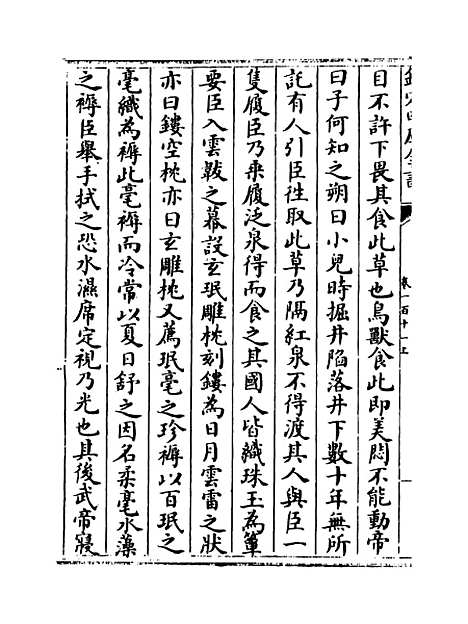 欽定四庫全書
卷一百十一上
目不許下畏其食此草也鳥獸食此即美悶不能動帝
曰子何知之朔曰小兒時掘井陷落井下數十年無所
託有人引臣徃取此草乃隔紅泉不得渡其人與臣一
隻履臣乃乘履泛泉得而食之其國人皆織珠玉為簟
要臣入雲韍之幕設玄珉雕枕刻鏤為日月雲雷之狀
亦曰鏤空枕亦曰玄雕枕又薦珉毫之珍褥以百珉之
毫織為褥此毫褥而冷常以夏日舒之因名柔毫水藻
之褥臣舉手拭之恐水濕席定視乃光也其後武帝寢